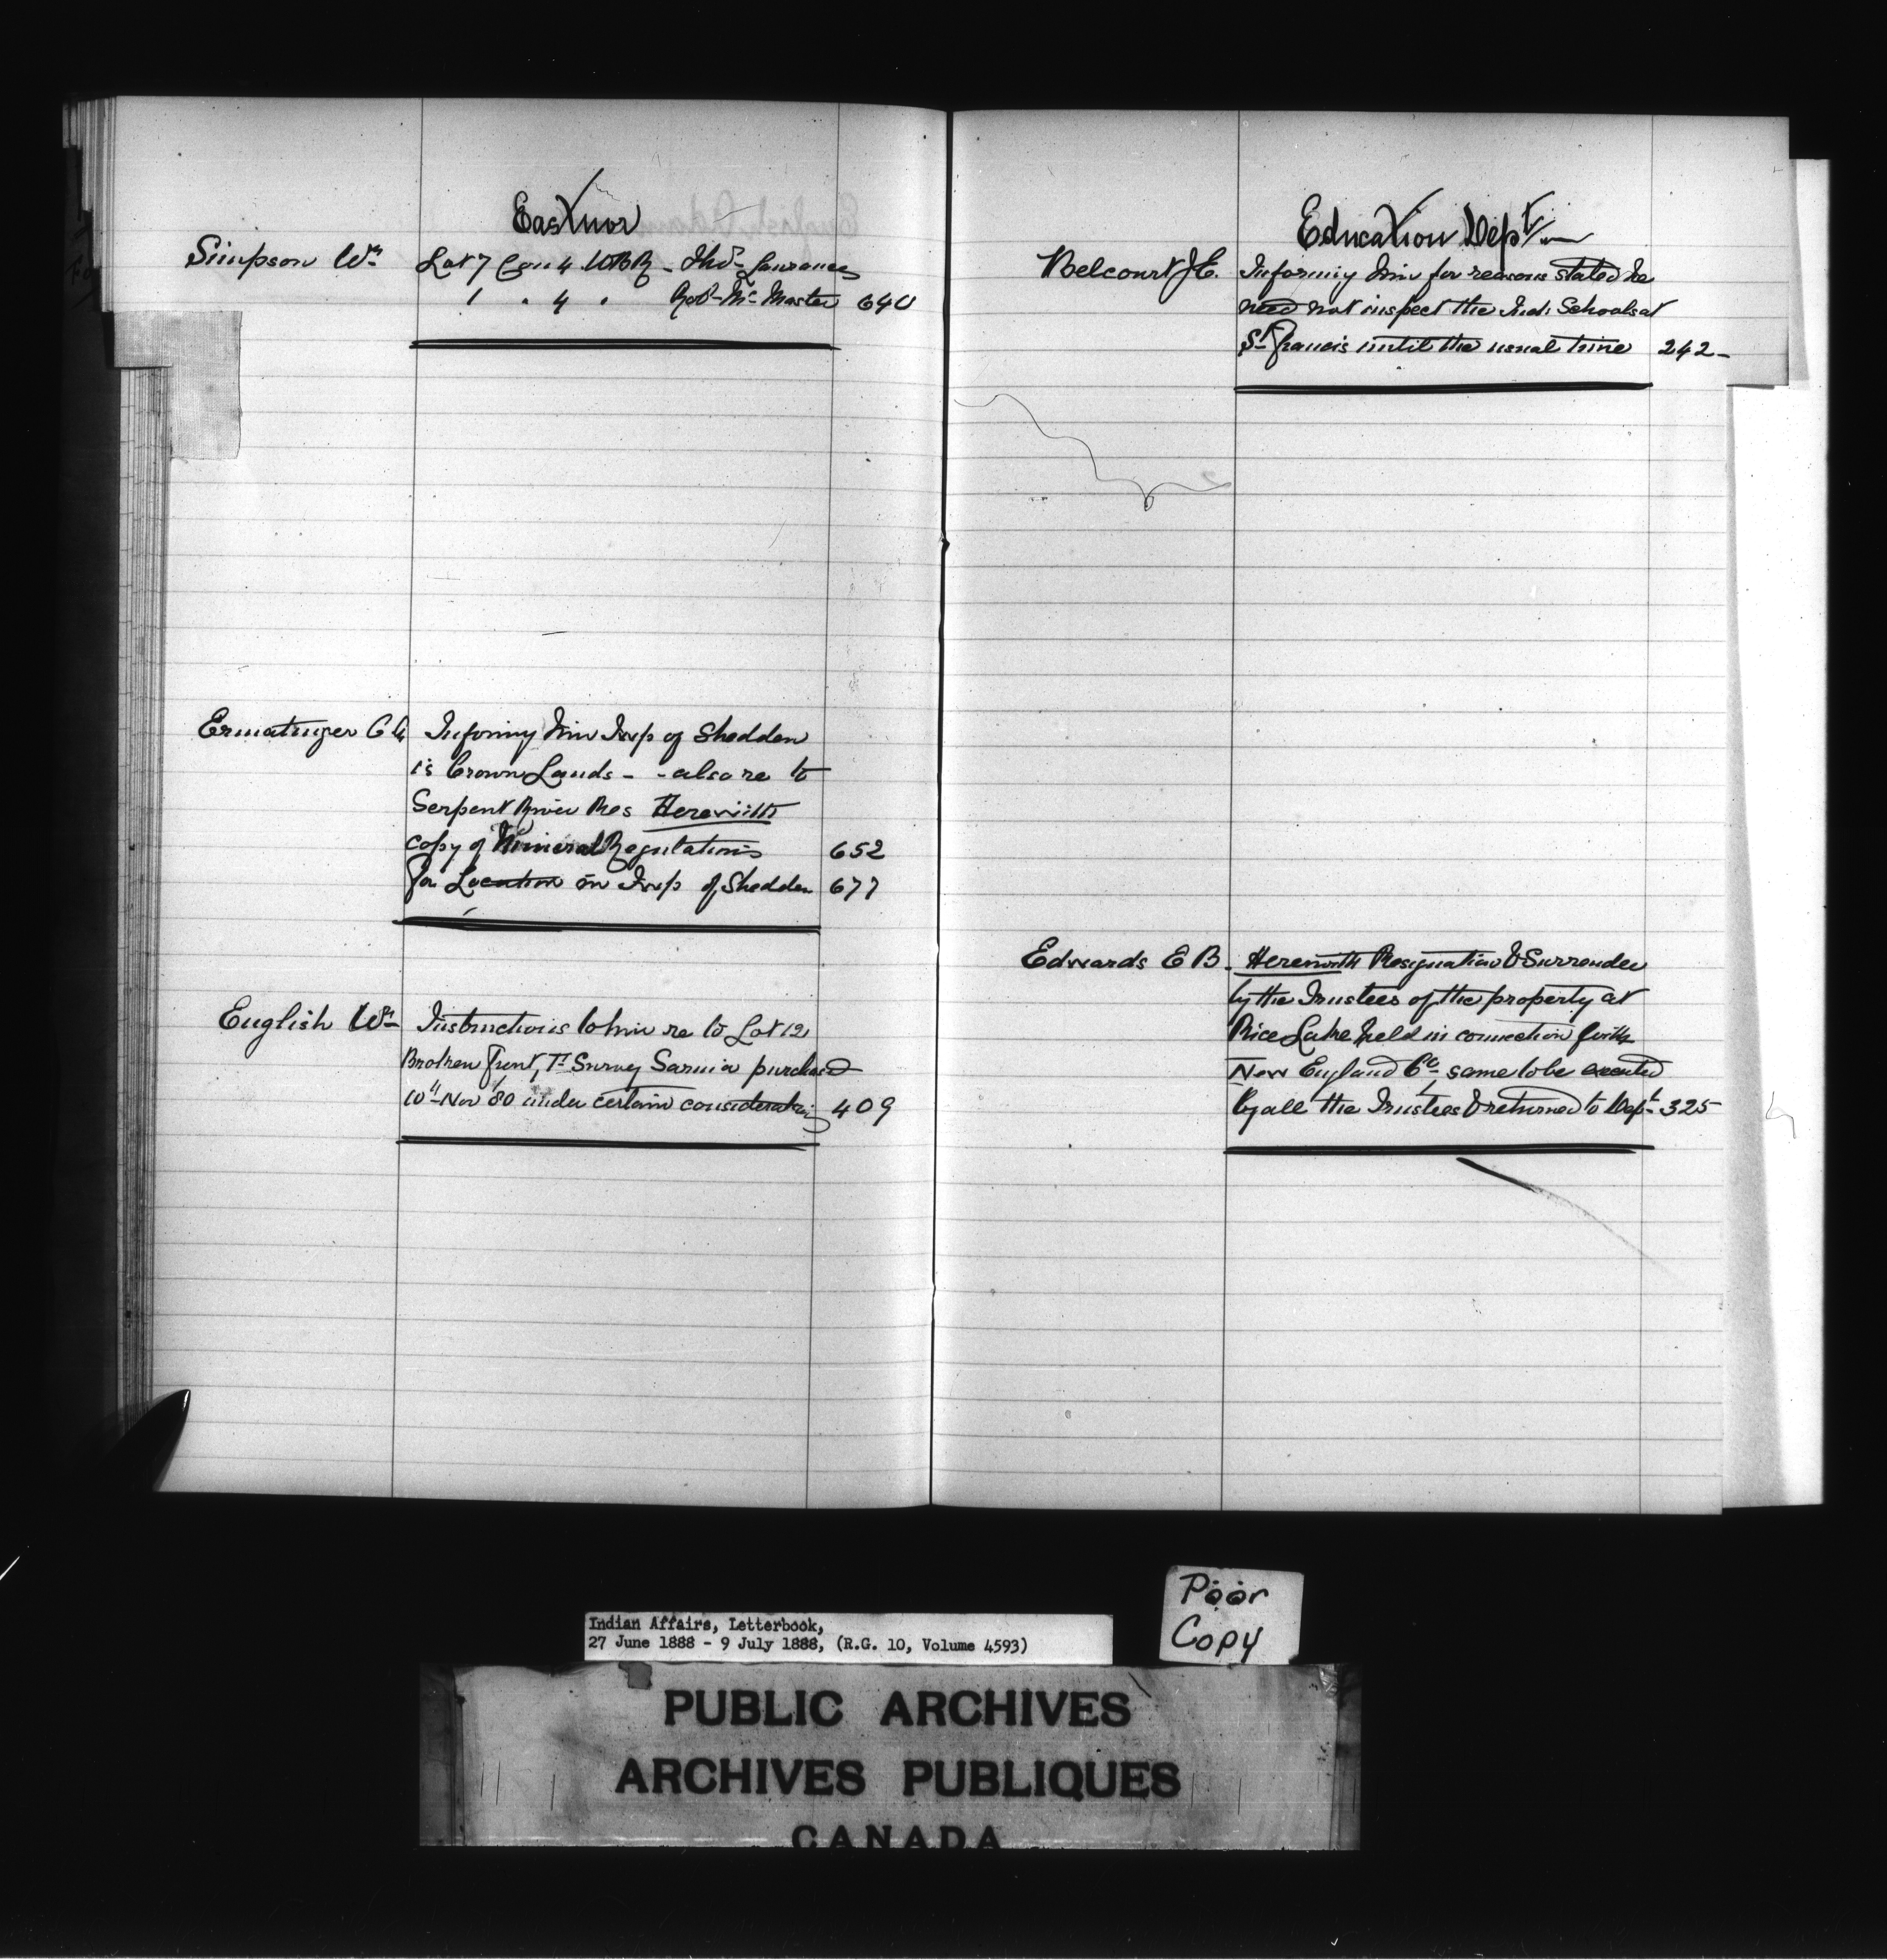 Eastnor
Simpson Wm Lot 7 Con 4 WBR - Thos Laurances
1 " 4 " Robt McMaster 640
Ermatinger C G Informing him Twp of Shedden
is Crown Lands - - also re to
Serpent River Res Herewith
copy of Mineral Regulations 652
for Location in Twp of Shedden 677
English Wm Instructions to him re to Lot 12
Broken Front, Tn Survey Sarnia purchased
10th Nov '80 under certain considerations 409
Education Dept
Belcourt J E. Informing him for reasons stated he
need not inspect the Ind: Schools at
St Francis until the usual time 242-
Edwards E B. Herewith Resignation & Surrender
by the Trustees of the property at
Rice Lake held in connection with
New England Co, same to be executed
by all the Trustees & returned to Dept 325
Poor
Copy
Indian Affairs, Letterbook,
27 June 1888 - 9 July 1888, (R.G. 10, Volume 4593)
PUBLIC ARCHIVES
ARCHIVES PUBLIQUES
CANADA